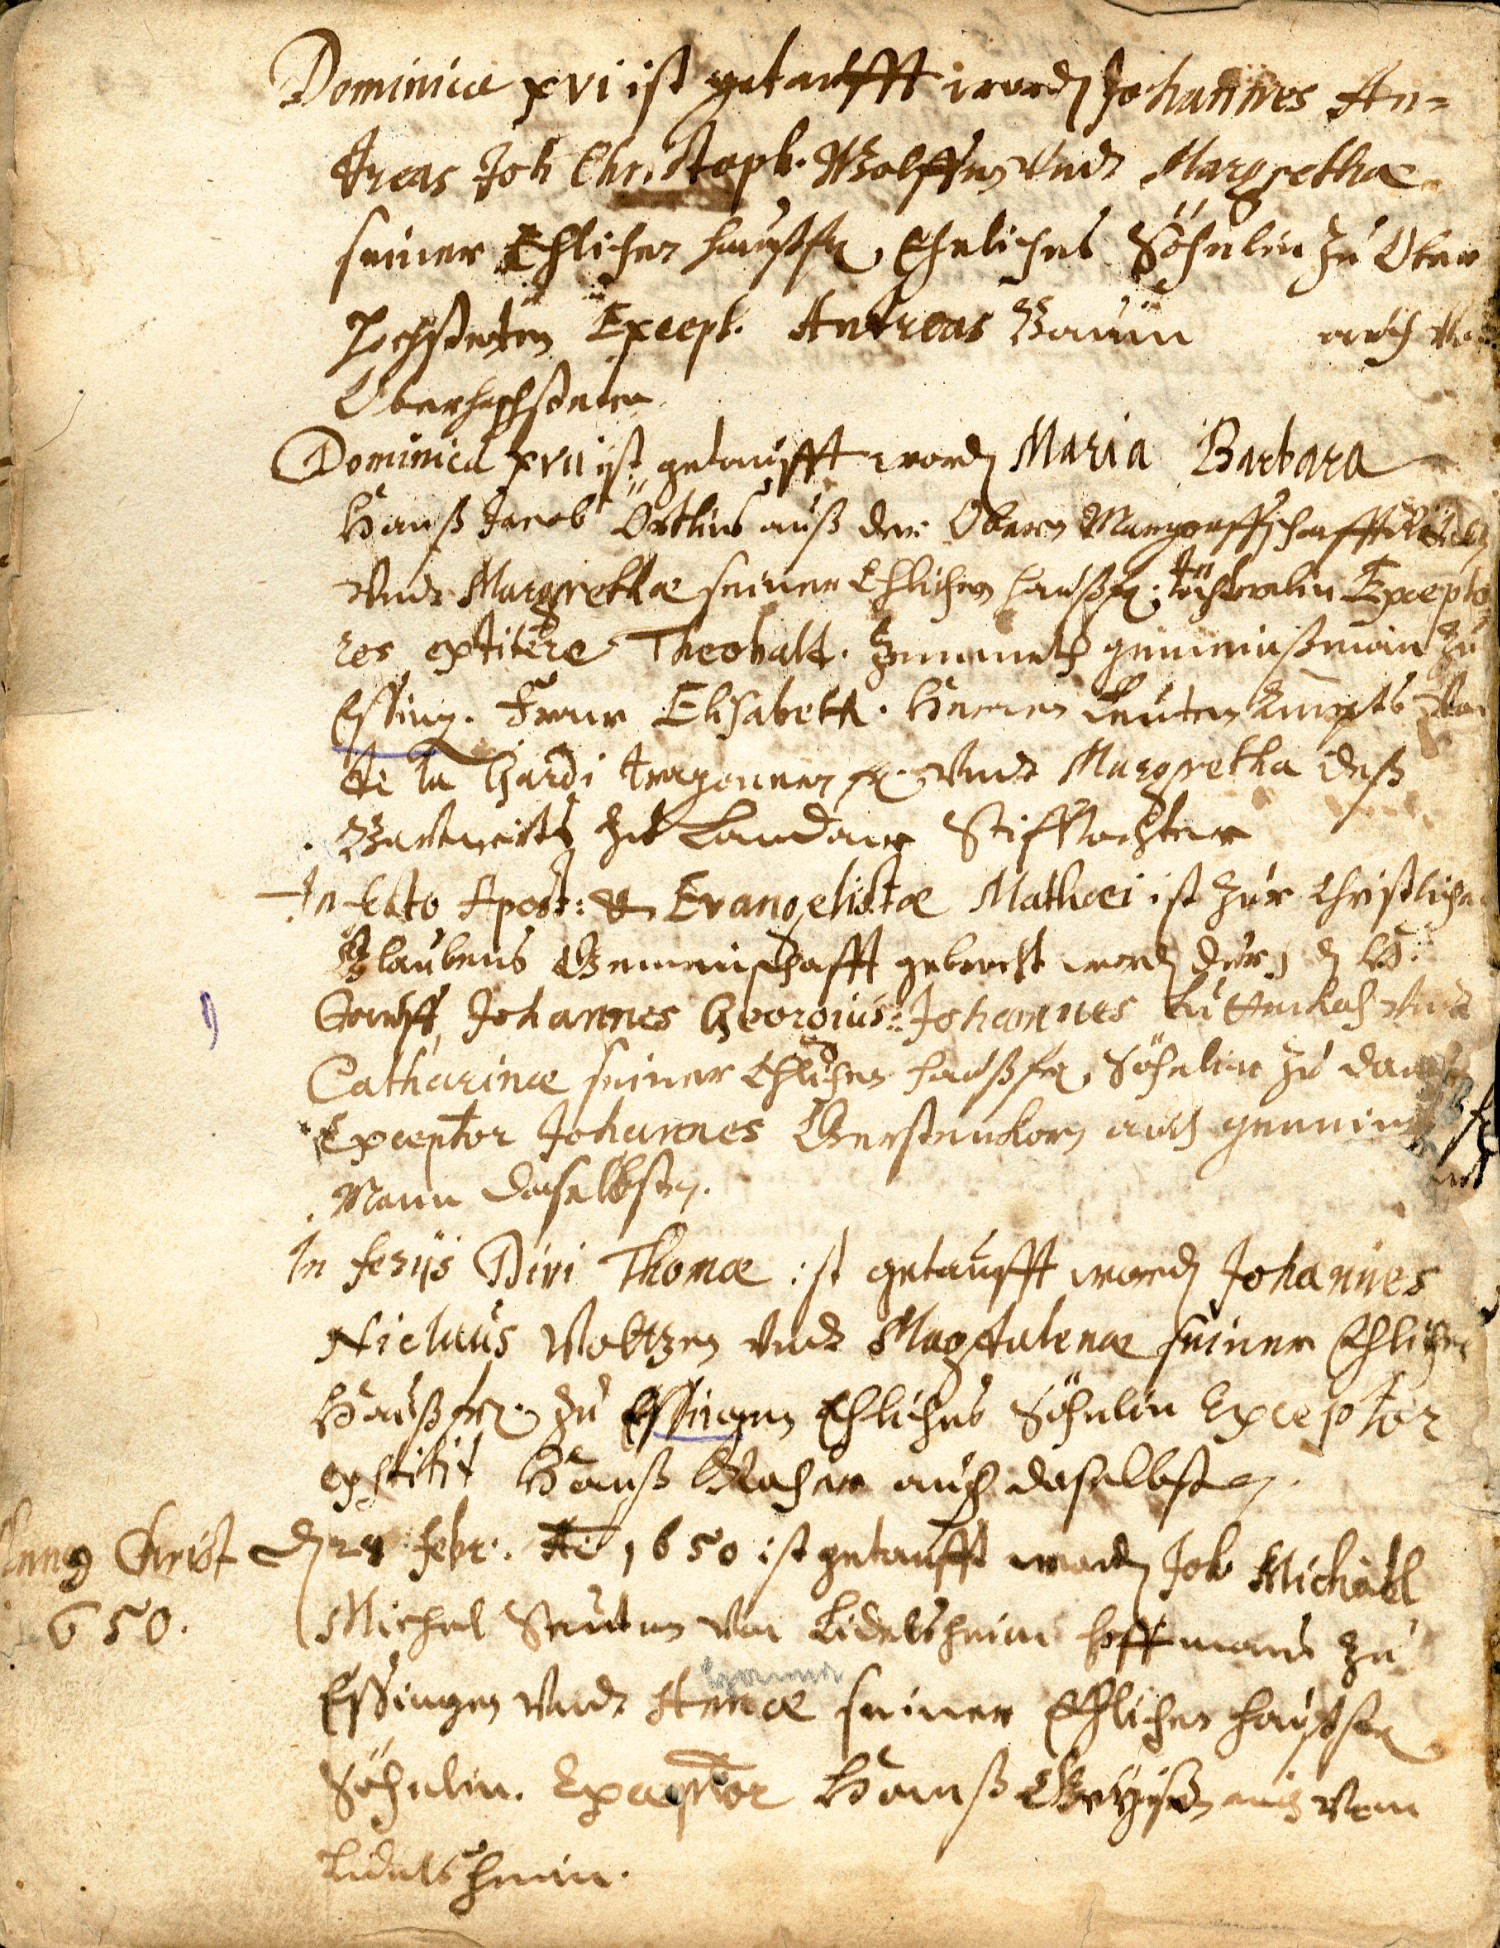 Dominica XVI ist getaufft word Johannes An-
dreas Joh Christoph. Wolffen Undt Margrethae
seiner Ehlichen haußfr. Eheliches Söhnlin zu Ober
Hochstetten Except. Andreas Baum auch Vo
Oberhochstetten
Dominica XVII ist getaufft word Maria Barbara
Hanß Jacob auß der Obern Marggraffschafft
Undt Margrethae seiner Ehlichen haußfr. töchterlin Excepto
res extitere Theobalt. gemeinßman zu
Essing. Fraw Elisabeth. Herren
de la Gardi fr. Undt Margretha deß
zu Landaw Stifftochter
In festo Apost: & Evangelistae Mathaei ist zur Christliche
Glaubens Gemeinschafft gebracht word durch d H.
Tauff, Johannes Georgius: Johannes Undt
Catharinae seiner Ehlichen haußfr. Söhnlin zu
Exceptor Johannes Gerstenkorn auch gemeins
Mann daselbsten.
In ferijs Divi Thomae ist getaufft word Johannes
Niclaus Voltzen Undt Magdalenae seiner Ehliche
Haußfr. zu Essingen Ehliches Söhnlin Exceptor
extitit Hanß auch daselbsten.
Anno Christ
650.
D 28 Febr. Ao 1650 ist getaufft word Joh Michael
Michel Von Lidelsheim hoffmans zu
Essingen Undt Annae seiner Ehlichen haußfr
Söhnlin. Exceptor Hanß auch Von
Lidelsheim.